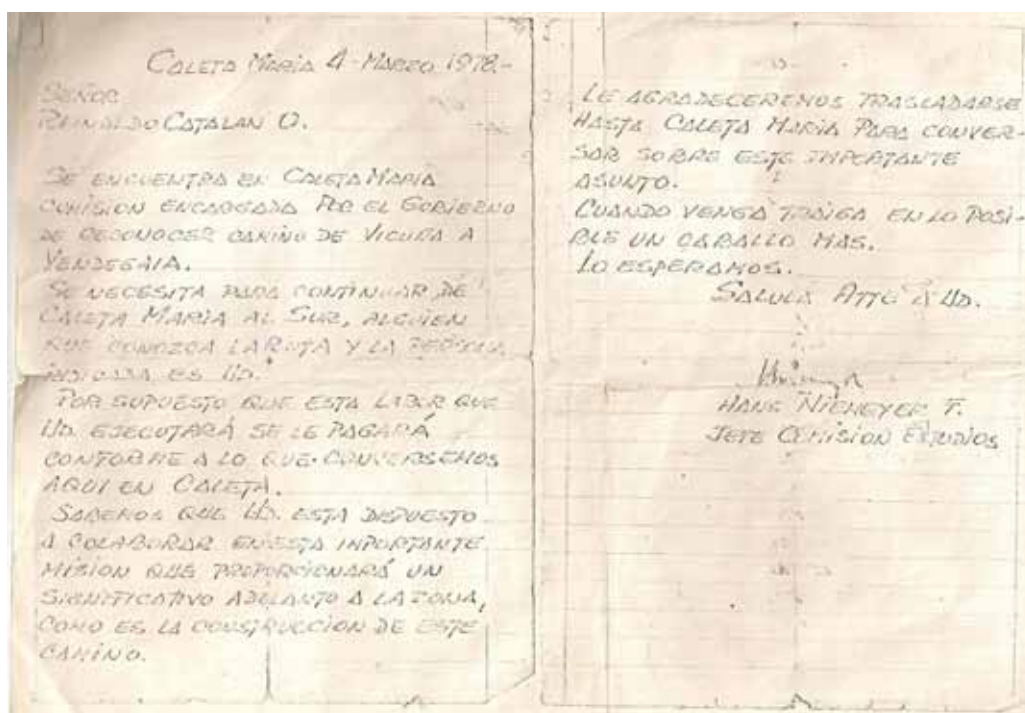 CALETA MARIA 4-MARZO 1978.-
SEÑOR
REINALDO CATALAN O.
SE ENCUENTRA EN CALETA MARIA
COMISION ENCARGADA POR EL GOBIERNO
DE RECONOCER CAMINO DE VICUÑA A
YENDEGAIA.
SE NECESITA PARA CONTINUAR DE
CALETA MARIA AL SUR, ALGUIEN
QUE CONOZCA LA RUTA Y LA PERSONA
INDICADA ES UD.
POR SUPUESTO QUE ESTA LABOR QUE
UD. EJECUTARÁ SE LE PAGARÁ
CONFORME A LO QUE CONVERSEMOS
AQUI EN CALETA.
SABEMOS QUE UD. ESTA DISPUESTO
A COLABORAR EN ESTA IMPORTANTE
MISION QUE PROPORCIONARÁ UN
SIGNIFICATIVO ADELANTO A LA ZONA,
COMO ES LA CONSTRUCCION DE ESTE
CAMINO.
LE AGRADECEREMOS TRASLADARSE
HASTA CALETA MARIA PARA CONVER-
SAR SOBRE ESTE IMPORTANTE
ASUNTO.
CUANDO VENGA TRAIGA EN LO POSI-
BLE UN CABALLO MAS.
LO ESPERAMOS.
SALUDA ATTE A UD.
HANS NIEMEYER F.
JEFE COMISION ESTUDIOS